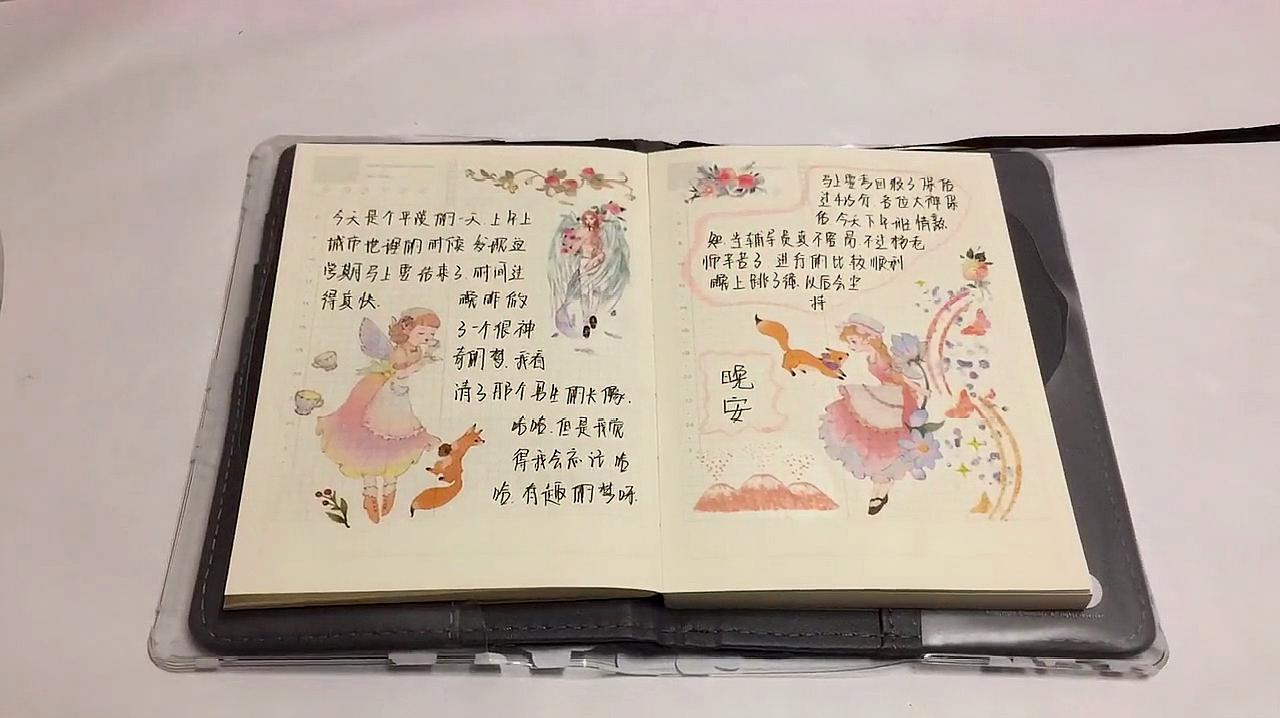 今天是个平淡的一天.上午上
城市地理的时候发现这
学期马上要结束了时间过
得真快.
睡昨做
了一个很神
奇的梦.我看
清了那个男生的长像.
哈哈.但是我觉
得我会忘记哈
哈.有趣的梦呀.
马上要考四级了保佑
过425分.各位大神保
佑 今天下午班情熟
知.当辅导员真不容易不过杨老
师辛苦了.进行的比较顺利
晚上跳了绳.以后会坚
持
晚
安